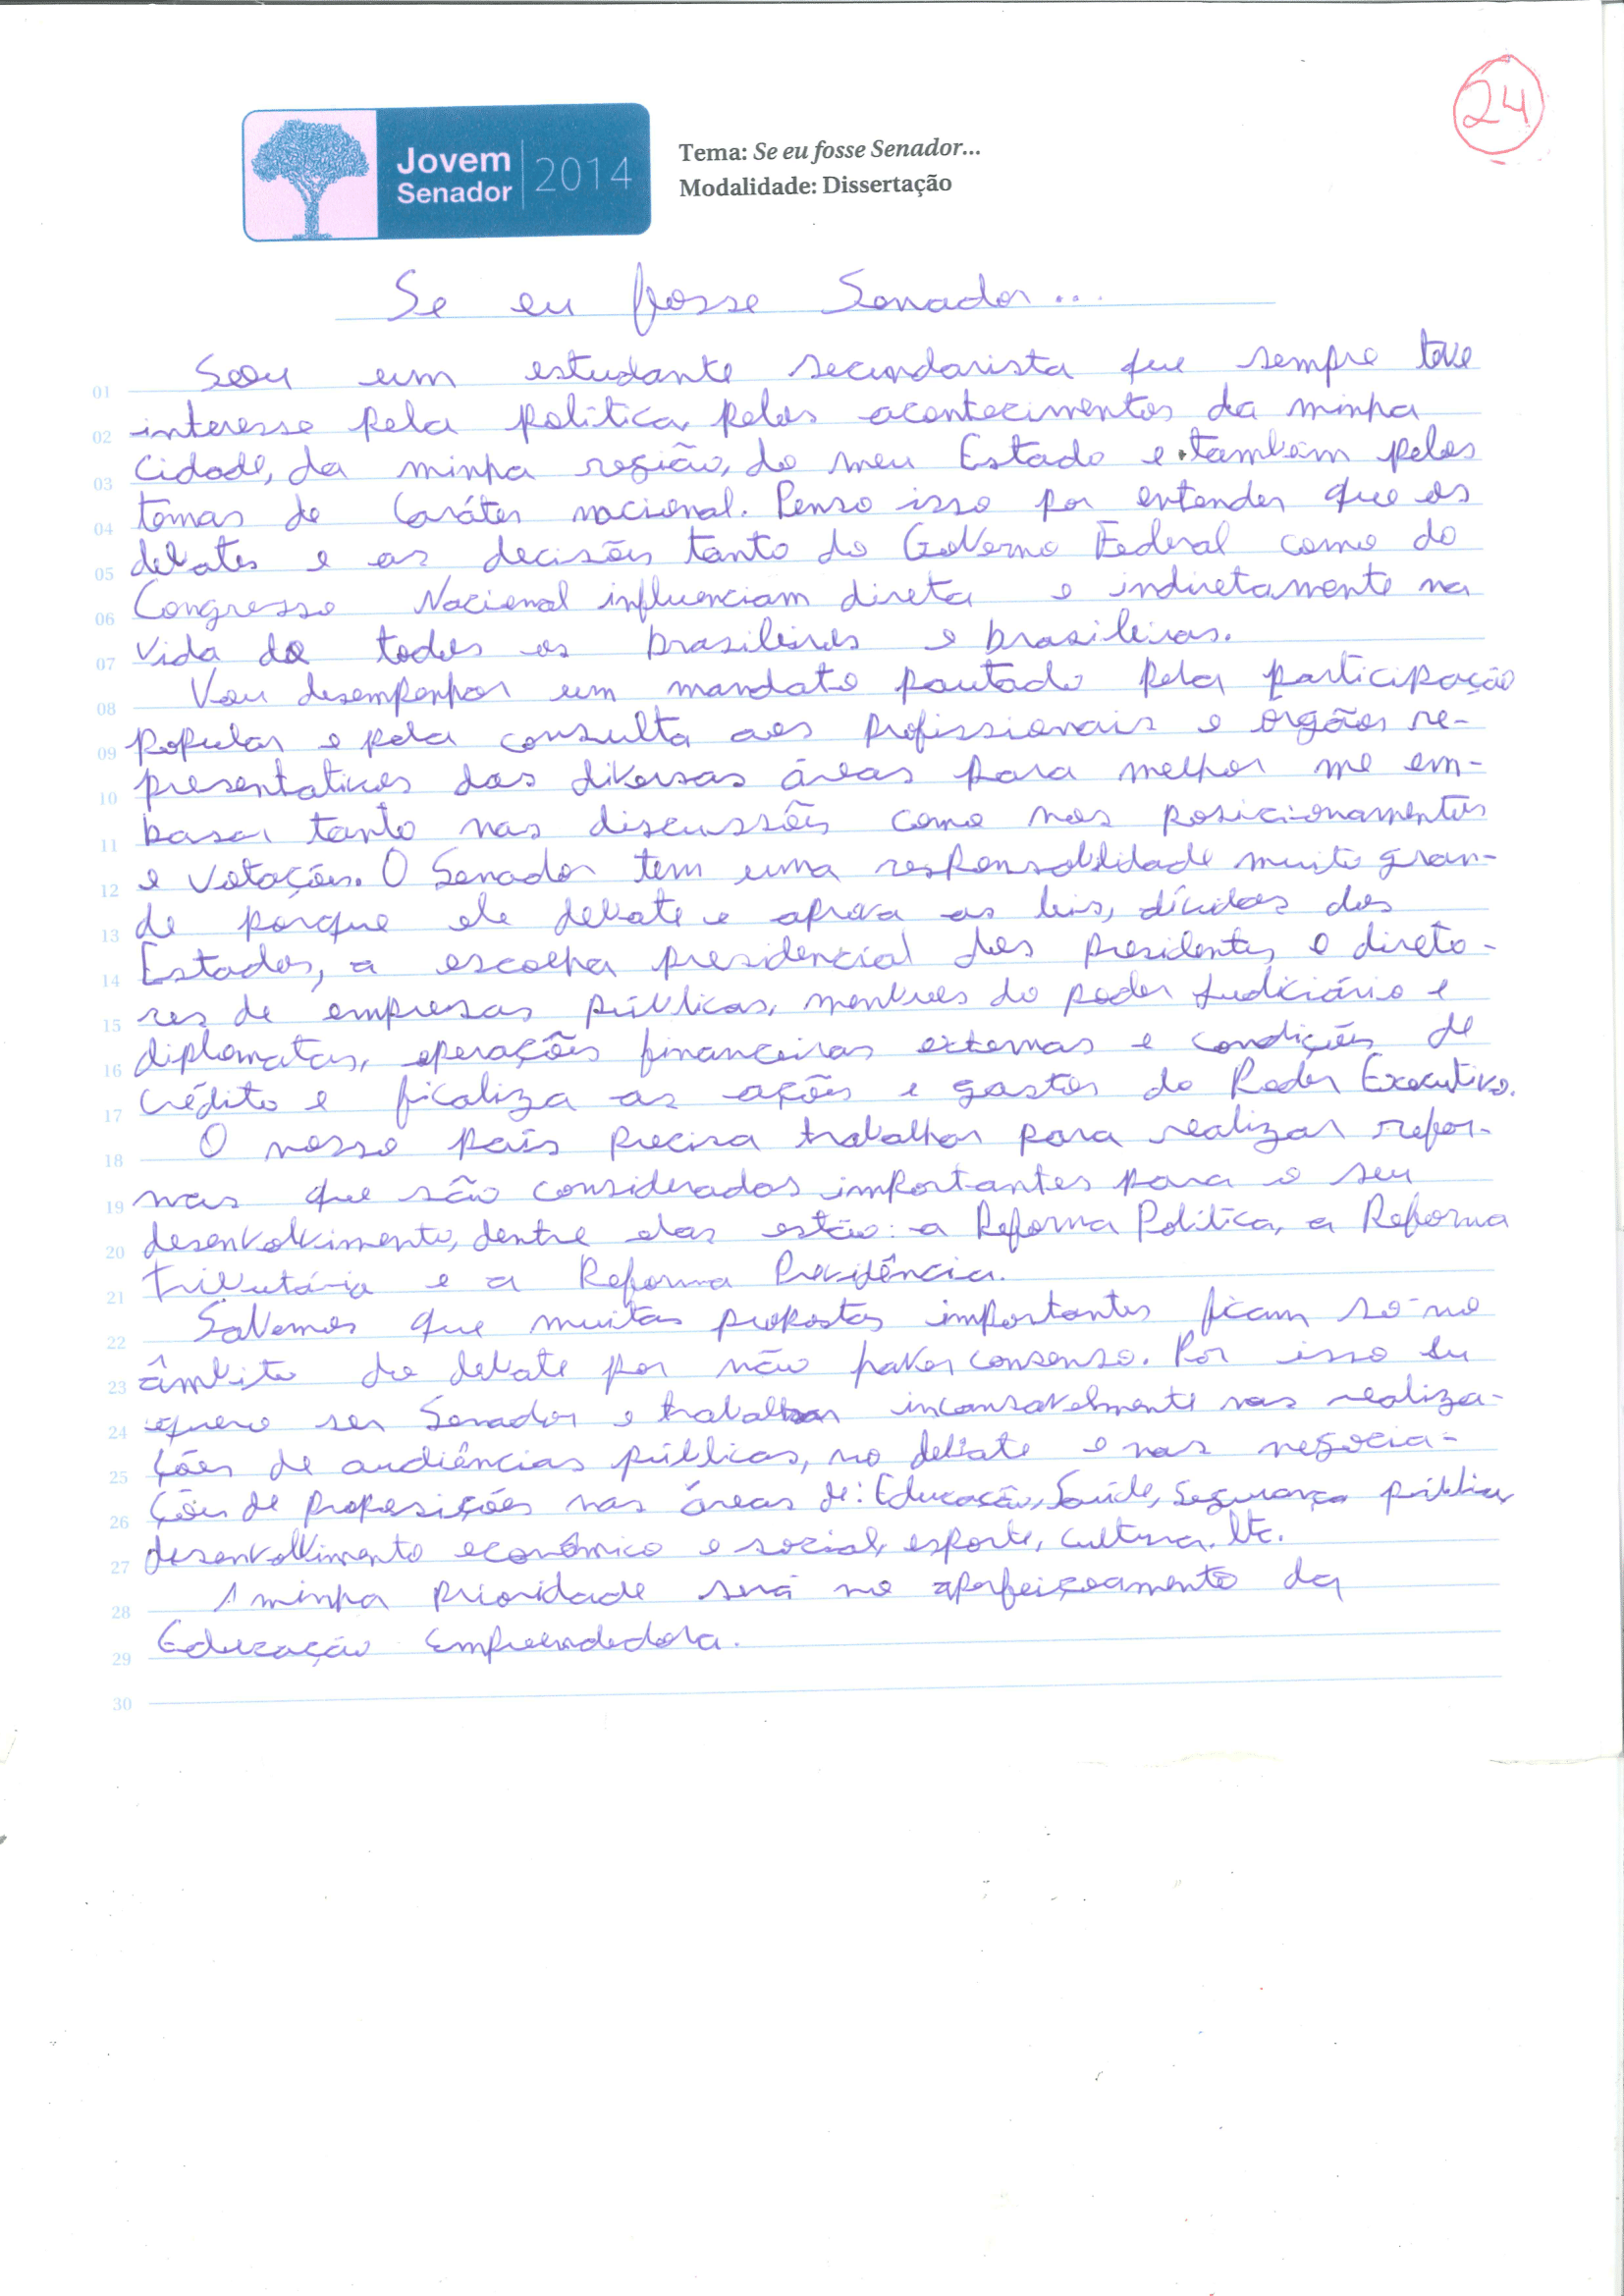 24
Jovem
Senador
2014
Tema: Se eu fosse Senador...
Modalidade: Dissertação
Se eu fosse Senador...
01 Sou um estudante secundarista que sempre teve
02 interesse pela política, pelos acontecimentos da minha
03 cidade, da minha região, do meu Estado e também pelos
04 temas de Caráter nacional. Penso isso por entender que os
05 debates e as decisões tanto do Governo Federal como do
06 Congresso Nacional influenciam direta e indiretamente na
07 vida de todos os brasileiros e brasileiras.
08 Vou desempenhar um mandato pautado pela participação
09 popular e pela consulta aos profissionais e órgãos re-
10 presentativos das diversas áreas para melhor me em-
11 basar tanto nas discussões como nos posicionamentos
12 e votações. O Senador tem uma responsabilidade muito gran-
13 de porque ele debate e aprova as leis, dívidas dos
14 Estados, a escolha presidencial dos presidentes e direto-
15 res de empresas públicas, membros do poder Judiciário e
16 diplomatas, operações financeiras externas e condições de
17 crédito e ficaliza as ações e gastos do Poder Executivo.
18 O nosso país precisa trabalhar para realizar refor-
19 mas que são considerados importantes para o seu
20 desenvolvimento, dentre elas estão: a Reforma Política, a Reforma
21 Tributária e a Reforma Previdência.
22 Sabemos que muitas propostas importantes ficam só no
23 âmbito do debate por não haver consenso. Por isso eu
24 quero ser Senador e trabalhar incansavelmente nas realiza-
25 ções de audiências públicas, no debate e nas negocia-
26 ções de proposições nas áreas de: Educação, Saúde, Segurança pública,
27 desenvolvimento econômico e social, esporte, cultura. Etc.
28 A minha prioridade será no aperfeiçoamento da
29 Educação Empreendedora.
30